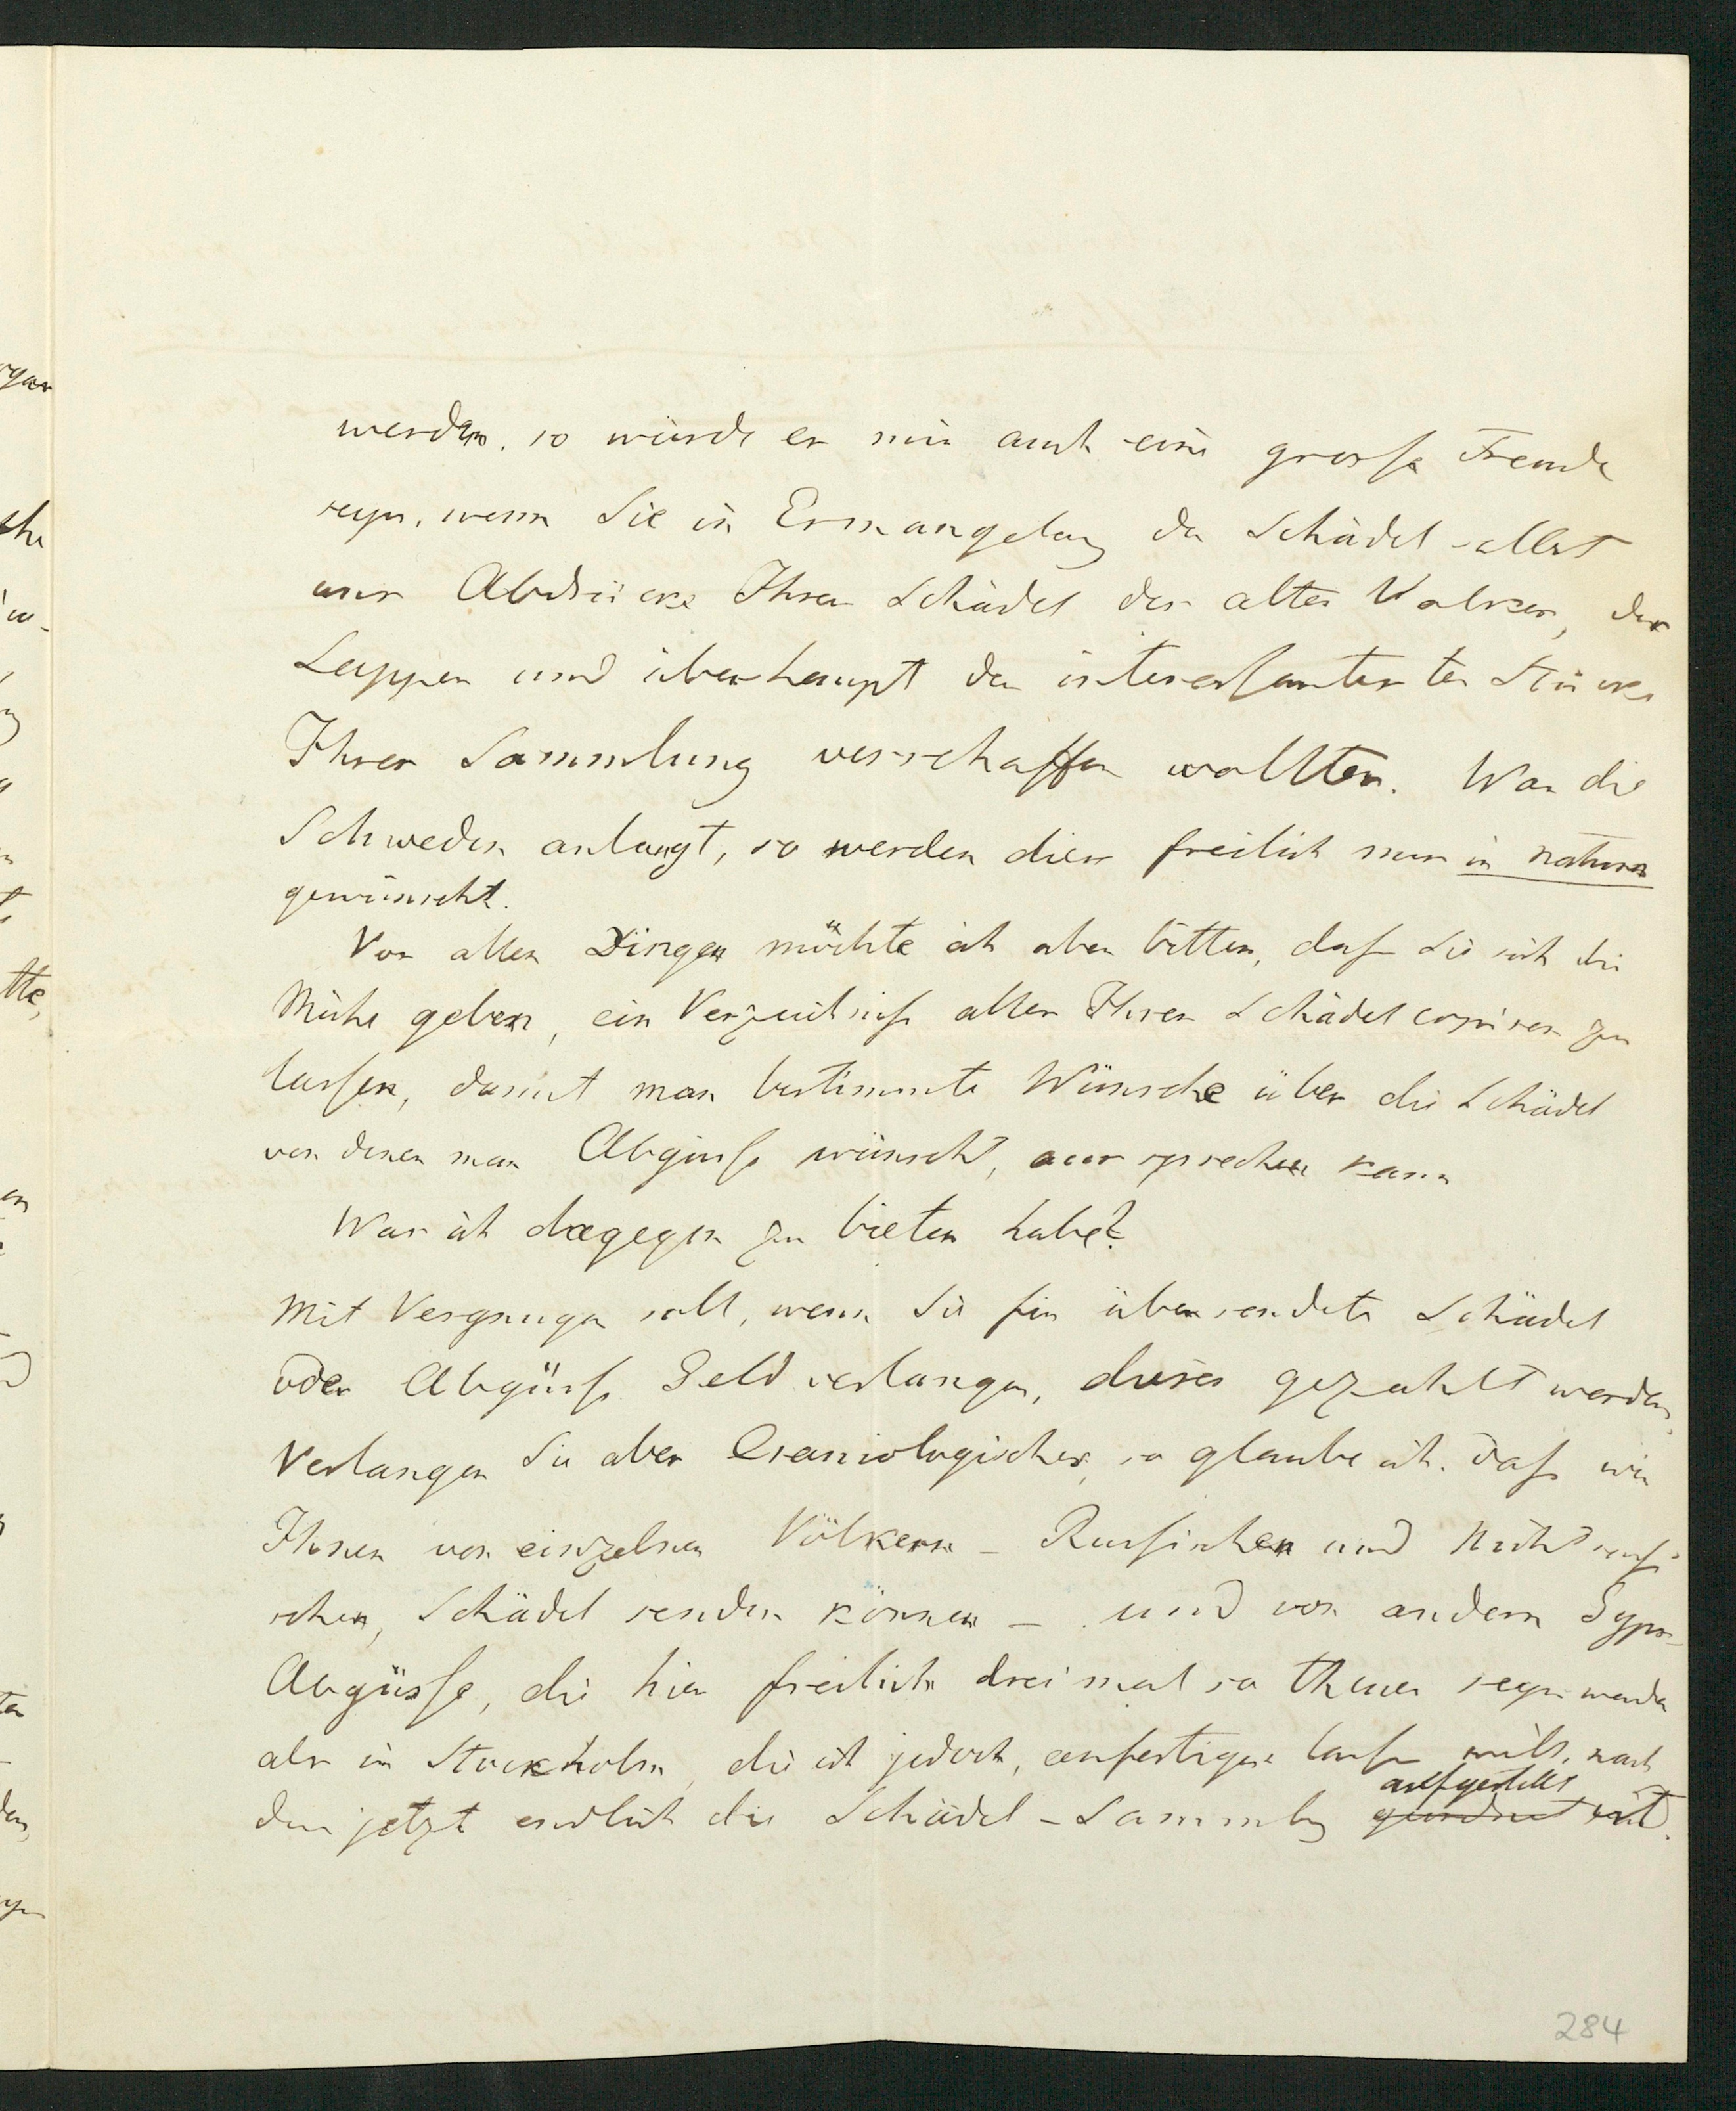 werden, so würde es mir auch eine grosse Freude
seyn, wenn Sie in Ermangelung der Schädel selbst
uns Abdrücke Ihrer Schädel der alten Völker, der
Lappen und überhaupt der interessantesten Stücke
Ihrer Sammlung verschaffen wollten. Was die
Schweden anlangt, so werden diese freilich nur in natura
gewünscht.
Vor allen Dingen möchte ich aber bitten, dass Sie sich die
Mühe geben, ein Verzeichniss aller Ihrer Schädel copiren zu
lassen, damit man bestimmte Wünsche über die Schädel
von denen man Abgüsse wünscht, aussprechen kann
Was ich dagegen zu bieten habe?
Mit Vergnügen soll, wenn Sie für übersendete Schädel
oder Abgüsse Geld verlangen, dieses gezahlt werden,
Verlangen Sie aber Craniologisches, so glaube ich, dass wir
Ihnen von einzelnen Völkern – Russischen und Nicht russi
schen, Schädel senden können – und von andern Gyps-
Abgüsse, die hier freilich drei mal so theuer seyn werden
als in Stockholm, die ich jedoch, anfertigen lassen will, nach
aufgestellt
dem jetzt endlich die Schädel-Sammlung geordnet ist.
284
gar
che
tte,
en
ten
den,